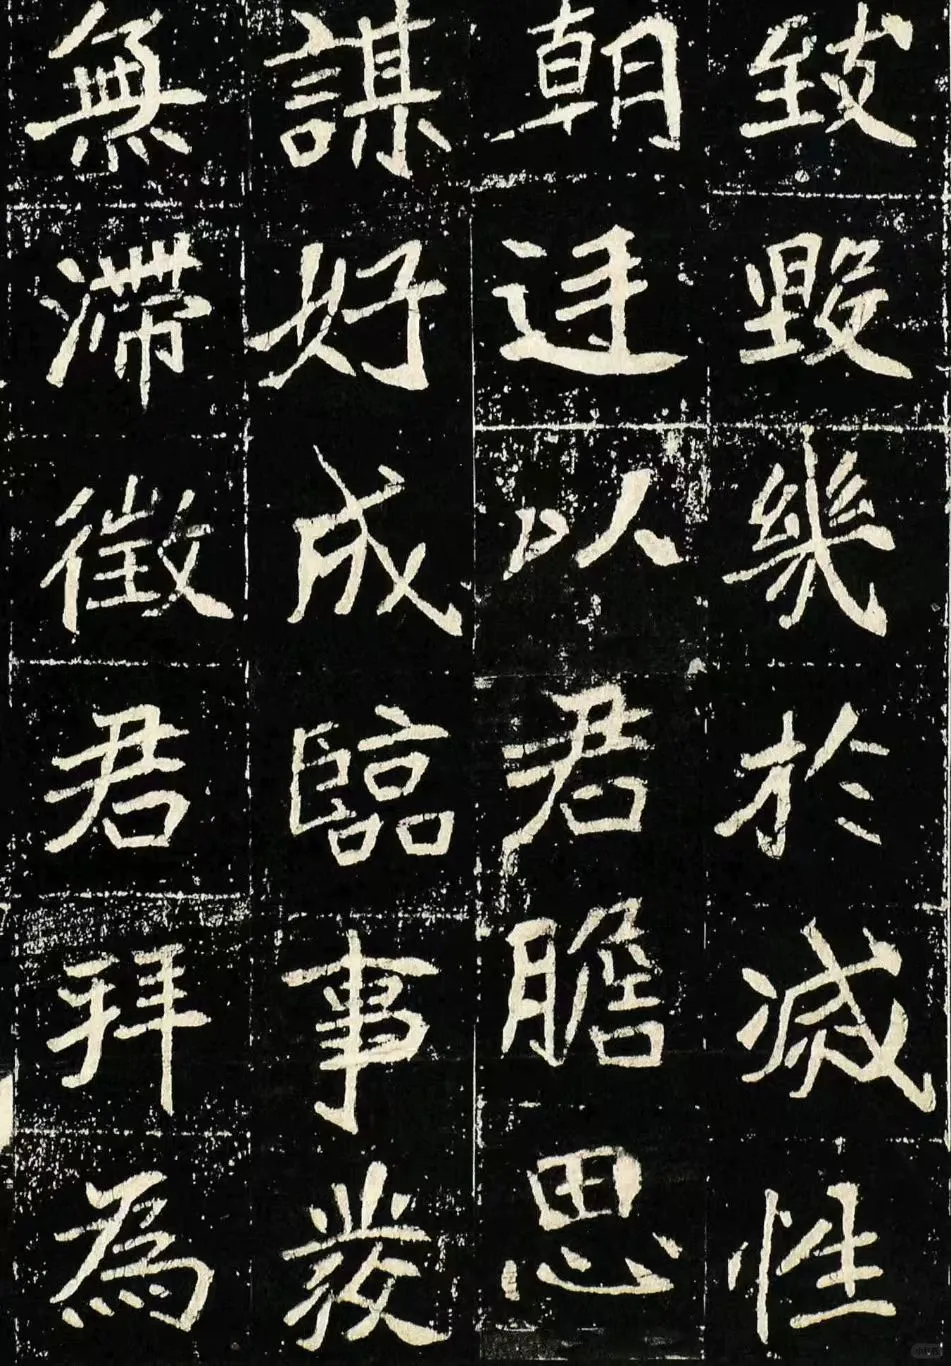 致毀幾於滅性
朝廷以君膽思
謀好成臨事發
無滯徵君拜為